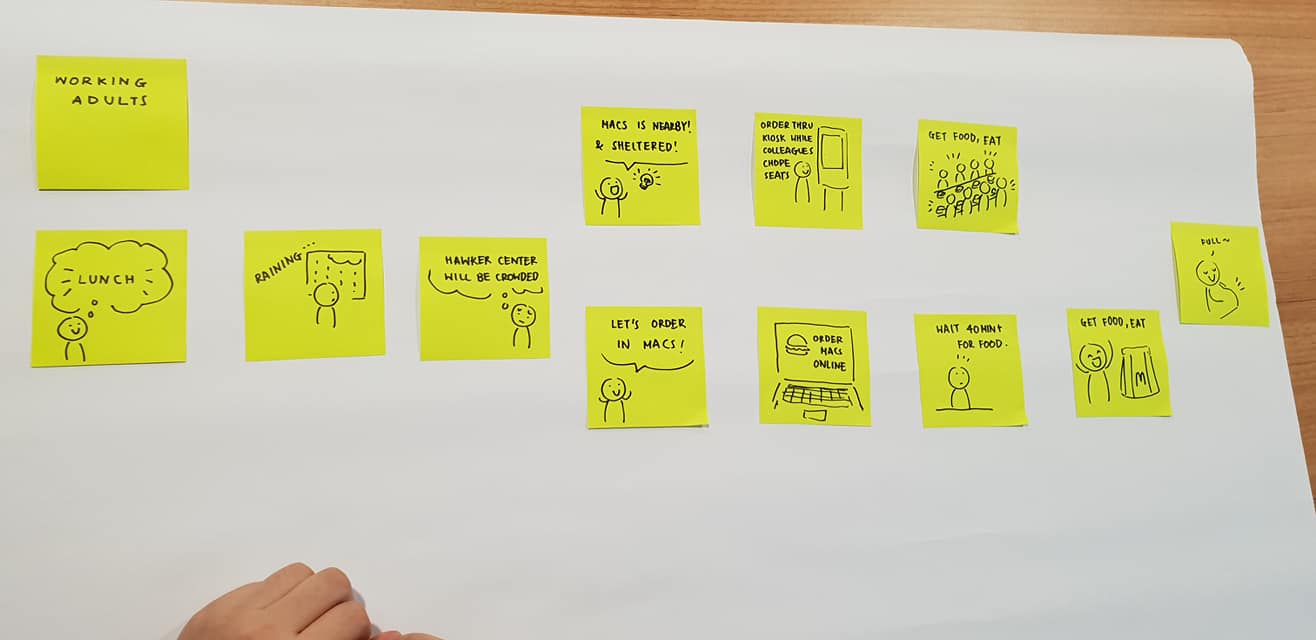 WORKING
ADULTS
LUNCH
RAINING...
HAWKER CENTER
WILL BE CROWDED
MACS IS NEARBY!
& SHELTERED!
ORDER THRU
KIOSK WHILE
COLLEAGUES
CHOPE
SEATS
GET FOOD, EAT
LET'S ORDER
IN MACS!
ORDER
MACS
ONLINE
WAIT 40MIN+
FOR FOOD.
GET FOOD, EAT
M
FULL~